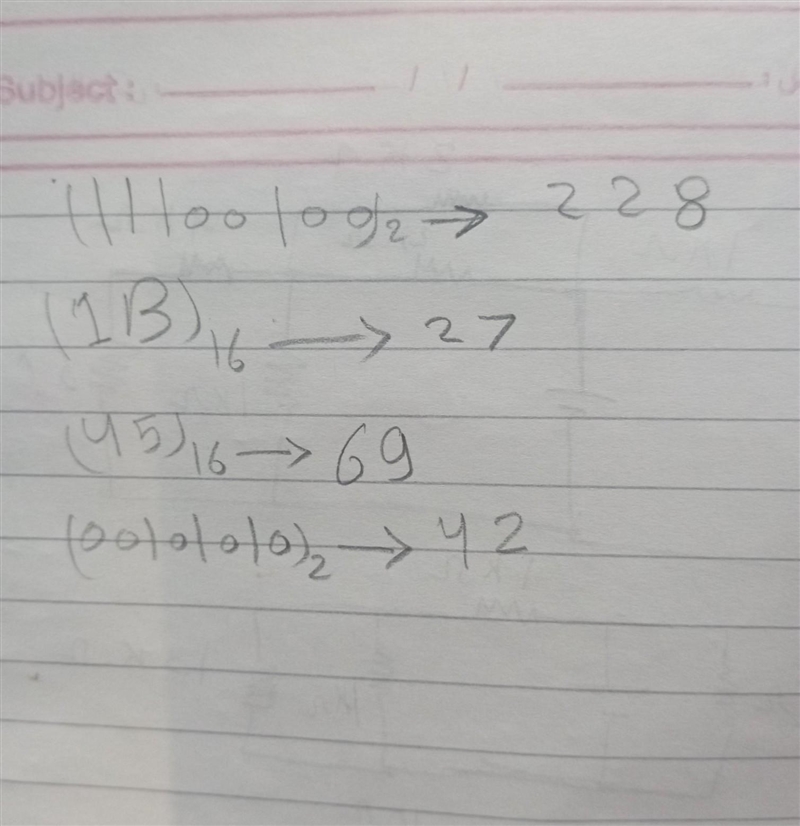 Subject: / /
(11100100)₂ → 228
(1B)₁₆ → 27
(45)₁₆ → 69
(00101010)₂ → 42